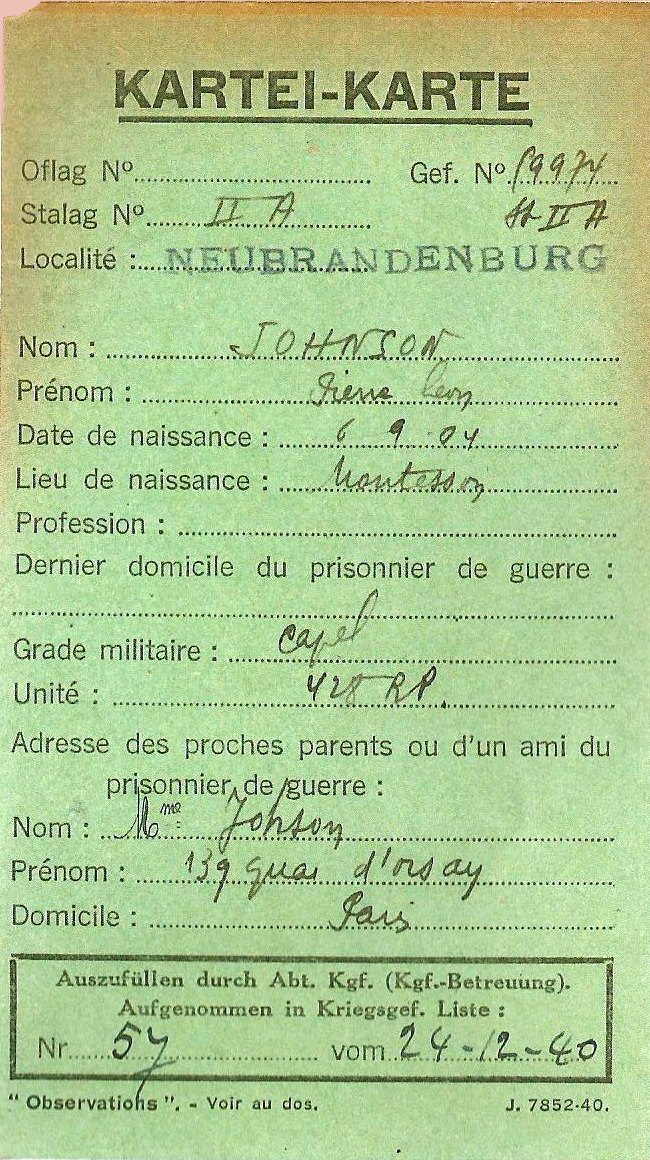 KARTEI-KARTE
Oflag Nº Gef. Nº 59974
Stalag Nº II A St II A
Localité : NEUBRANDENBURG
Nom : JOHNSON
Prénom : Pierre Léon
Date de naissance : 6 9 04
Lieu de naissance : Montesson
Profession :
Dernier domicile du prisonnier de guerre :
Grade militaire : Capel
Unité : 428 RP.
Adresse des proches parents ou d'un ami du
prisonnier de guerre :
Nom : Mme Johson
Prénom : 139 quai d'orsay
Domicile : Paris
Auszufüllen durch Abt. Kgf. (Kgf.-Betreuung).
Aufgenommen in Kriegsgef. Liste :
Nr. 57 vom 24-12-40
" Observations ". - Voir au dos. J. 7852-40.